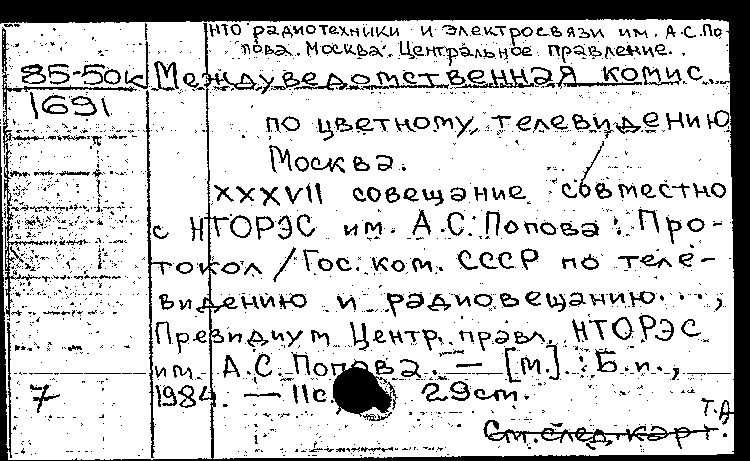 НТО радиотехники и электросвязи им. А.С.По-
пова. Москва. Центральное правление.
85-50к Междуведомственная комис.
1691
по цветному телевидению
Москва.
XXXVII совещание совместно
с НТОРЭС им. А.С. Попова : Про-
токол / Гос. ком. СССР по теле-
видению и радиовещанию...,
Президиум Центр. правл. НТОРЭС
им. А.С. Попова. — [М.] : Б.и.,
7 1984. — 11с. 29см.
Т.Д
См. след. карт.